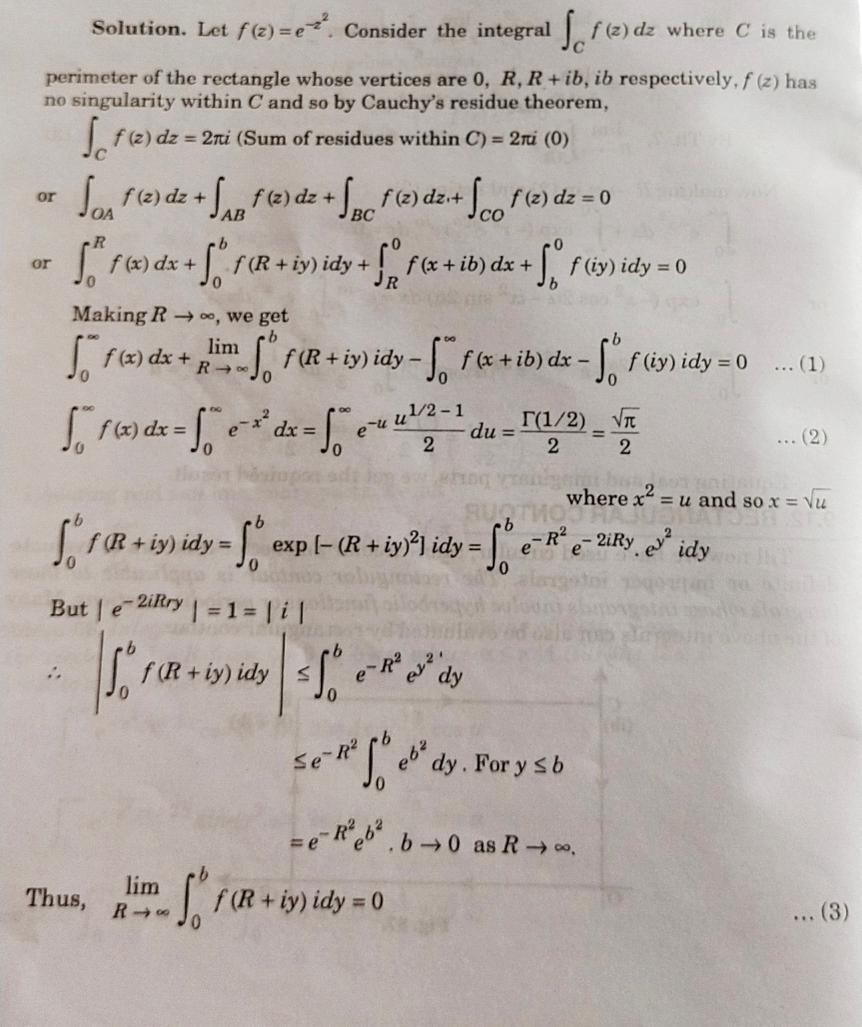 Solution. Let f (z) = e^{-z^2}. Consider the integral ∫_C f (z) dz where C is the
perimeter of the rectangle whose vertices are 0, R, R + ib, ib respectively, f (z) has
no singularity within C and so by Cauchy's residue theorem,
∫_C f (z) dz = 2πi (Sum of residues within C) = 2πi (0)
or ∫_{OA} f (z) dz + ∫_{AB} f (z) dz + ∫_{BC} f (z) dz + ∫_{CO} f (z) dz = 0
or ∫_0^R f (x) dx + ∫_0^b f (R + iy) idy + ∫_R^0 f (x + ib) dx + ∫_b^0 f (iy) idy = 0
Making R → ∞, we get
∫_0^∞ f (x) dx + lim_{R → ∞} ∫_0^b f (R + iy) idy − ∫_0^∞ f (x + ib) dx − ∫_0^b f (iy) idy = 0 ... (1)
∫_0^∞ f (x) dx = ∫_0^∞ e^{-x^2} dx = ∫_0^∞ e^{-u} \frac{u^{1/2 - 1}}{2} du = \frac{Γ(1/2)}{2} = \frac{√π}{2} ... (2)
where x^2 = u and so x = √u
∫_0^b f (R + iy) idy = ∫_0^b exp [− (R + iy)^2] idy = ∫_0^b e^{-R^2} e^{-2iRy} . e^{y^2} idy
But | e^{-2iRry} | = 1 = | i |
∴ |∫_0^b f (R + iy) idy| ≤ ∫_0^b e^{-R^2} e^{y^2} dy
≤ e^{-R^2} ∫_0^b e^{b^2} dy . For y ≤ b
= e^{-R^2} e^{b^2} . b → 0 as R → ∞.
Thus, lim_{R → ∞} ∫_0^b f (R + iy) idy = 0 ... (3)